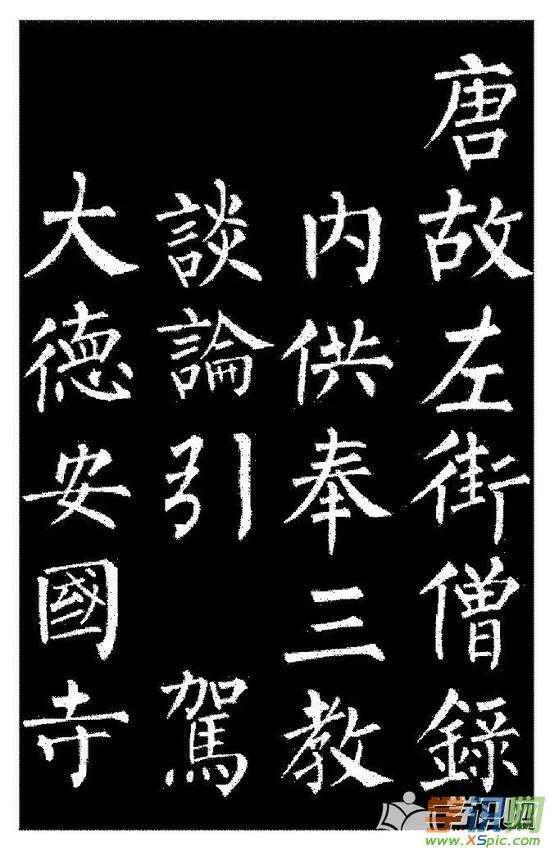 唐故左街僧錄
内供奉三教
談論引駕
大德安國寺
学识网
www.XSpic.com